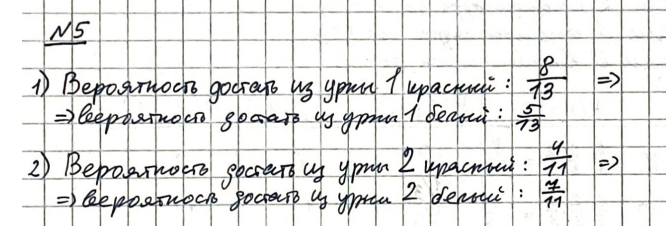 №5
1) Вероятность достать из урны 1 красный : 8/13 =>
=> вероятность достать из урны 1 белый : 5/13
2) Вероятность достать из урны 2 красный : 4/11 =>
=> вероятность достать из урны 2 белый : 7/11